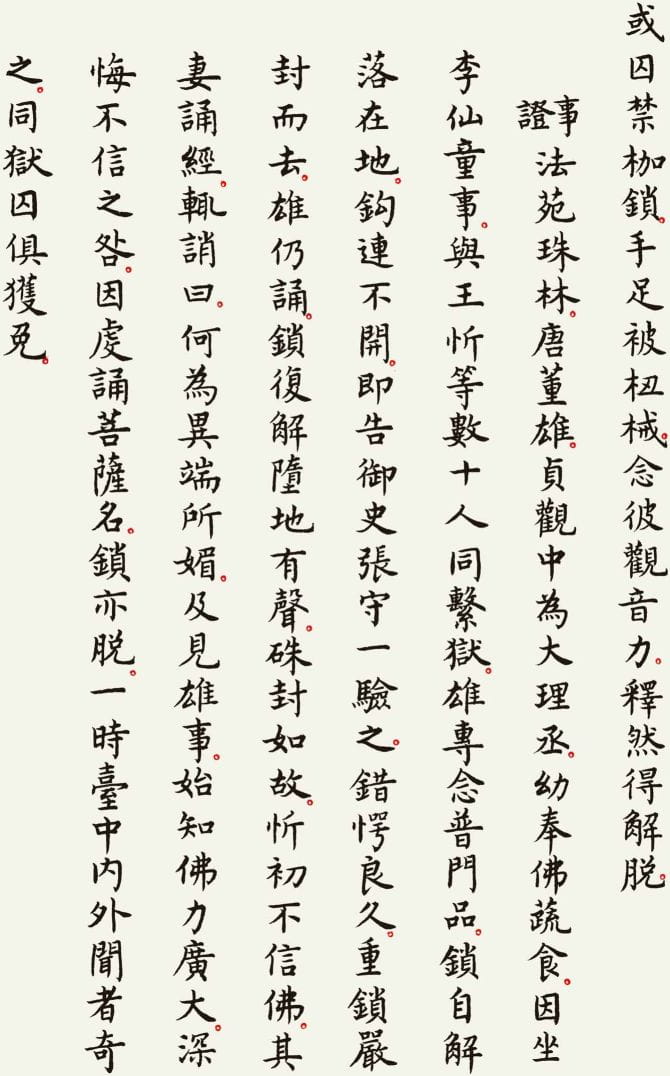 或囚禁枷鎖。手足被杻械。念彼觀音力。釋然得解脫。
事證 法苑珠林。唐董雄。貞觀中為大理丞。幼奉佛蔬食。因坐
李仙童事。與王忻等數十人同繫獄。雄專念普門品。鎖自解
落在地。鈎連不開。即告御史張守一驗之。錯愕良久。重鎖嚴
封而去。雄仍誦。鎖復解墮地有聲。硃封如故。忻初不信佛。其
妻誦經。輒誚曰。何為異端所媚。及見雄事。始知佛力廣大。深
悔不信之咎。因虔誦菩薩名。鎖亦脫。一時臺中內外聞者奇
之。同獄囚俱獲免。